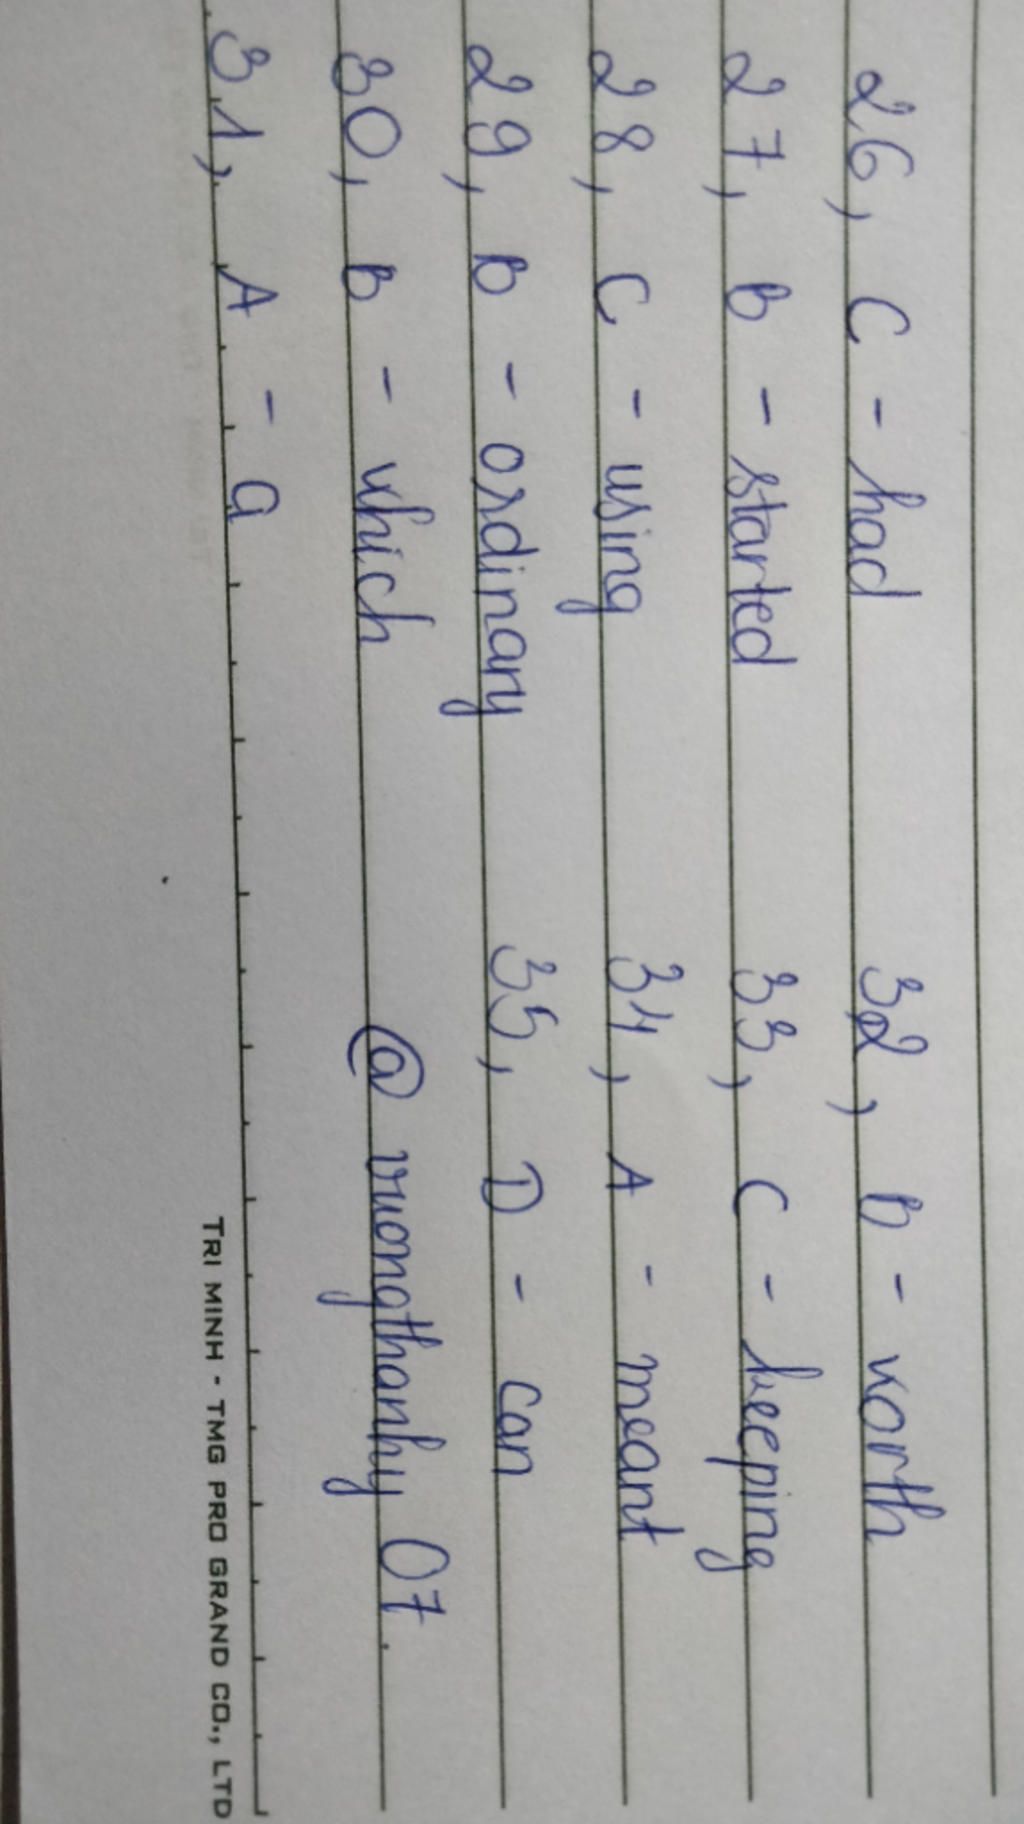 26, C - had
27, B - started
28, C - using
29, B - ordinary
30, B - which
31, A - a
32, B - worth
33, C - keeping
34, A - meant
35, D - can
@ vuongthanhy 07.
TRI MINH - TMG PRO GRAND CO., LTD